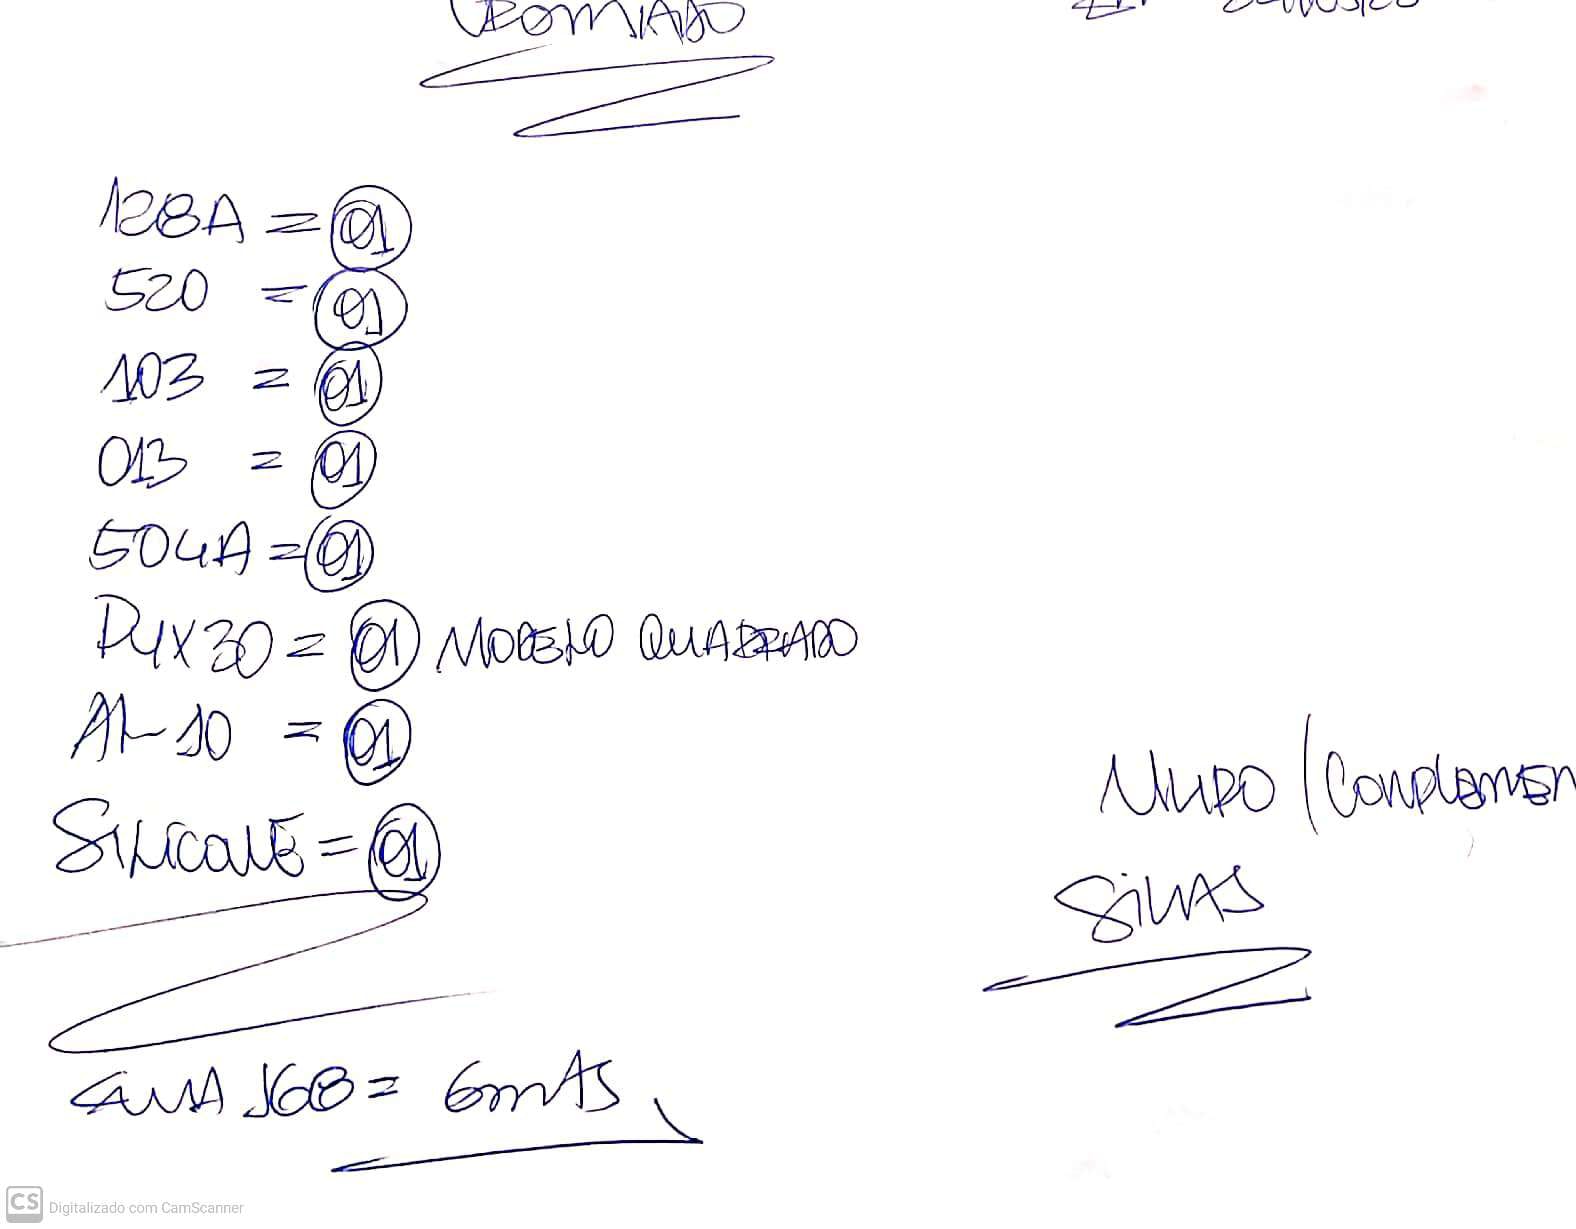 CROMIADO
128A = 01
520 = 01
103 = 01
013 = 01
504A = 01
PUX30 = 01 MODELO QUADRADO
AL-10 = 01
SILICONE = 01
168 = 6mts
SILVAS
CS Digitalizado com CamScanner